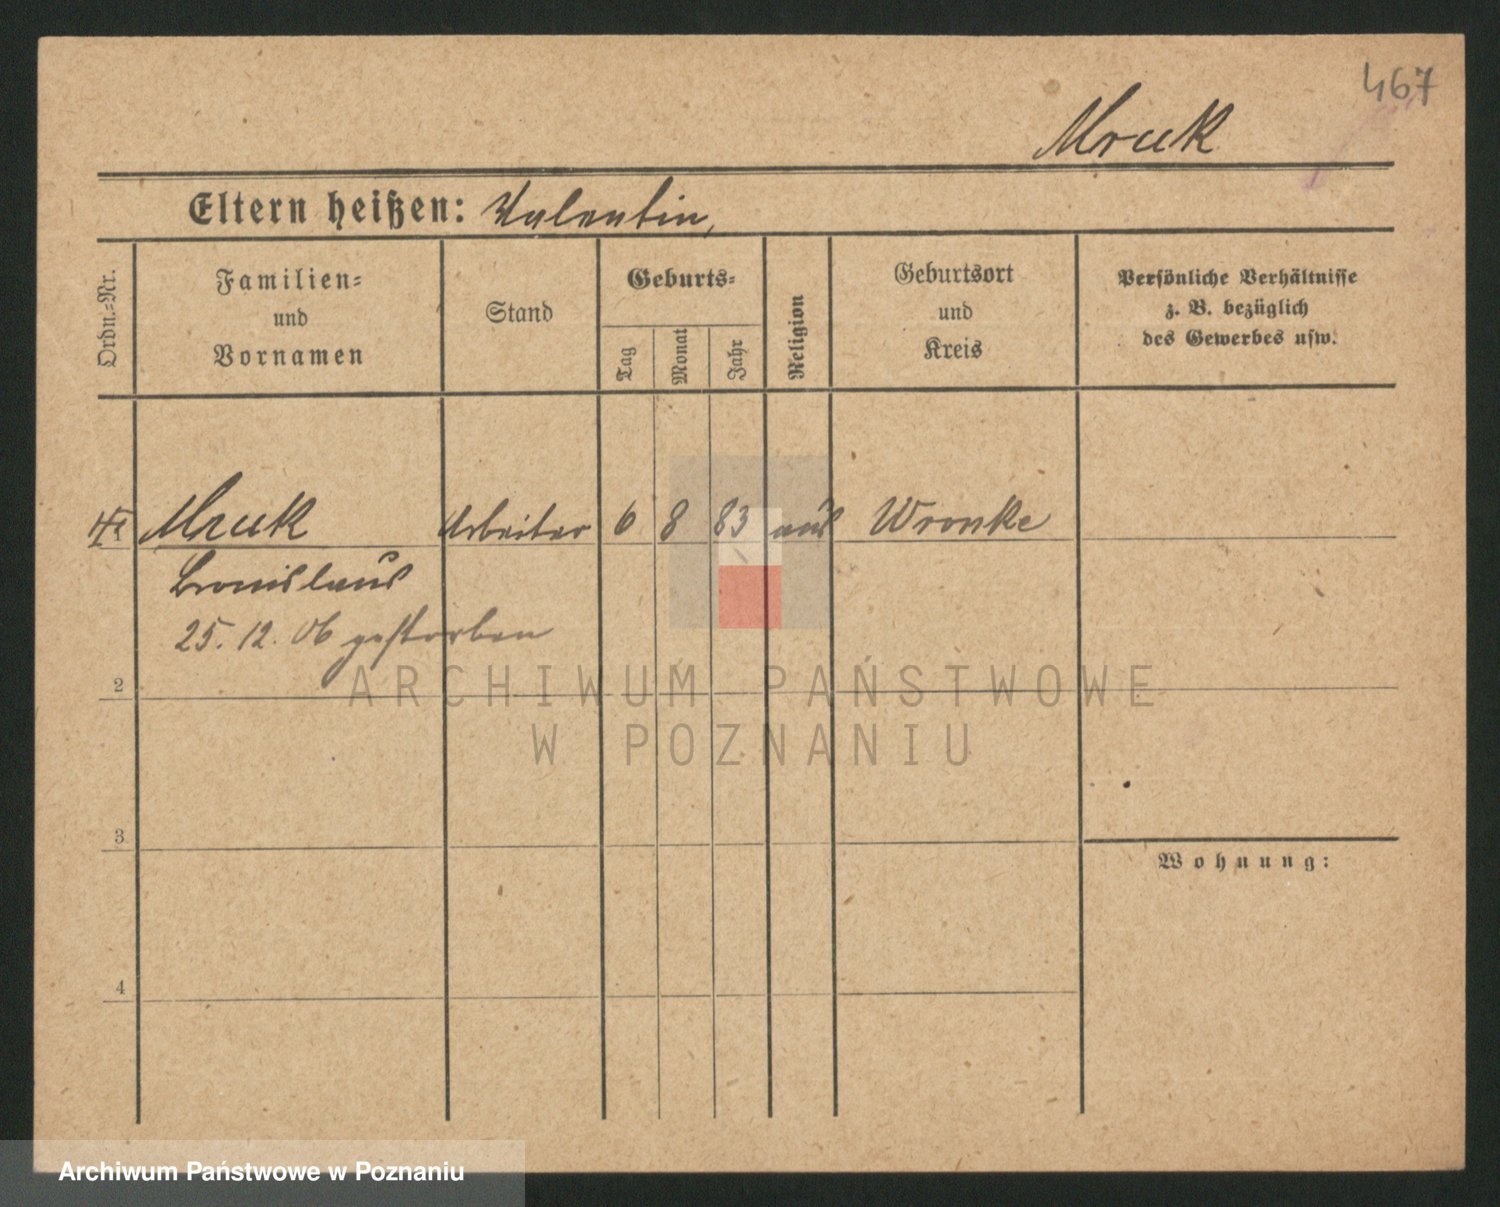 467
Mruk
Eltern heißen: Valentin,
Ordn.=Nr.
Familien=
und
Vornamen
Stand
Geburts=
Tag
Monat
Jahr
Religion
Geburtsort
und
Kreis
Persönliche Verhältnisse
z. B. bezüglich
des Gewerbes usw.
Mruk Arbeiter 6 8 83 Wronke
Bronislaus
25. 12. 06 gestorben
2
3
4
Wohnung:
ARCHIWUM PAŃSTWOWE
W POZNANIU
Archiwum Państwowe w Poznaniu